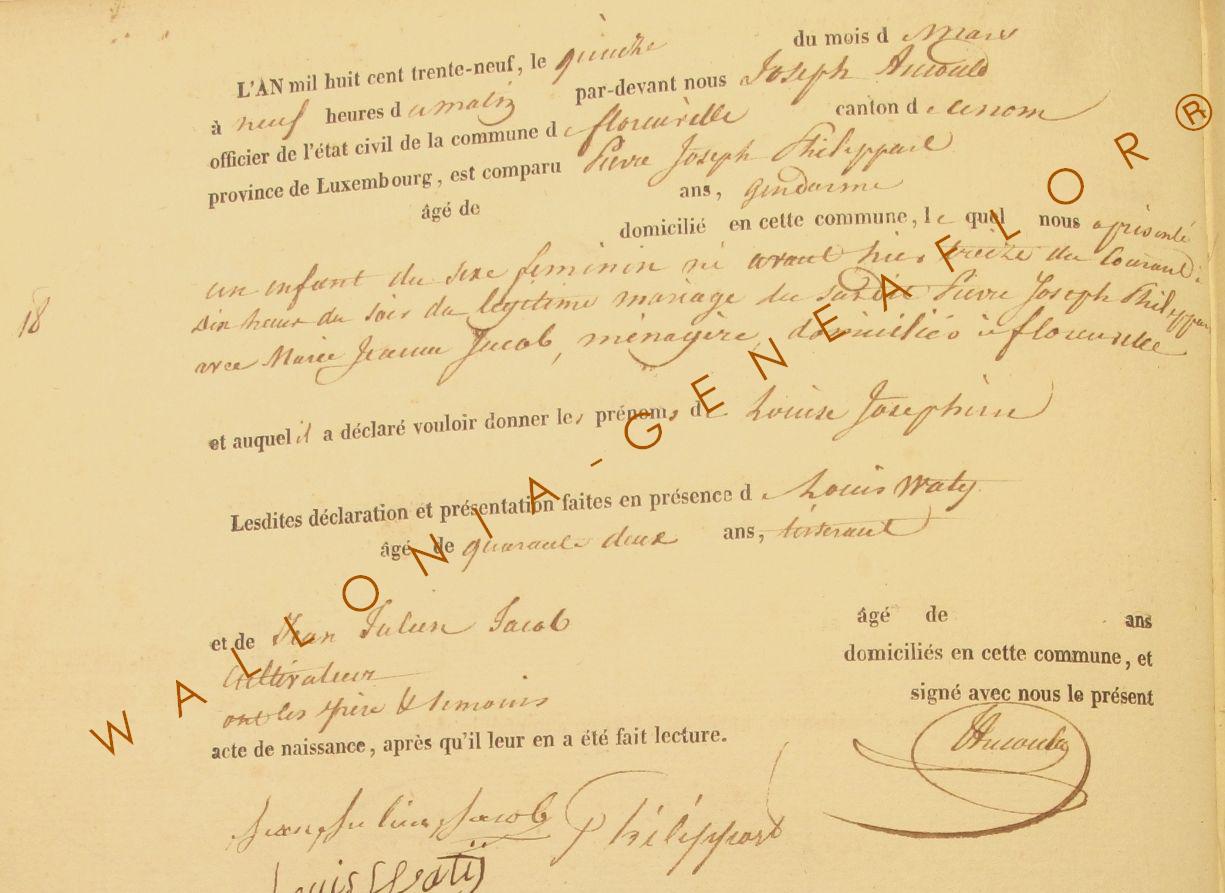 L'AN mil huit cent trente-neuf, le quinze du mois d e Mars
à neuf heures d u matin par-devant nous Joseph Arnould
officier de l'état civil de la commune d e florenville canton d
province de Luxembourg, est comparu Pierre Joseph Philippart
âgé de ans, gendarme
domicilié en cette commune, le quel nous a présenté
18
un enfant du sexe feminin né avant hier treize du Courant
Dix heures du soir du légitime mariage du susdit Pierre Joseph Philippart
avec Marie Jeanne Jacob, ménagère, domiciliés à florenville
et auquel il a déclaré vouloir donner les prénoms de Louise Josephine
Lesdites déclaration et présentation faites en présence d e Louis Waty
âgé de quarante deux ans, tisserant
et de Jean Julien Jacob âgé de ans
Cultivateur domiciliés en cette commune, et
ont les père & temoins signé avec nous le présent
acte de naissance, après qu'il leur en a été fait lecture.
Jean Julien Jacob Philippart
Louis Watÿ
WALLONIA-GENEAFLOR®